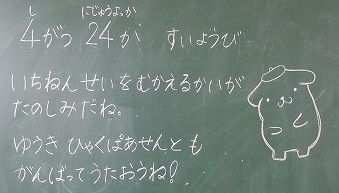 し にじゅうよっか
4がつ 24か すいようび
いちねんせいをむかえるかいが
たのしみだね。
ゆうき ひゃくぱあせんとも
がんばってうたおうね!